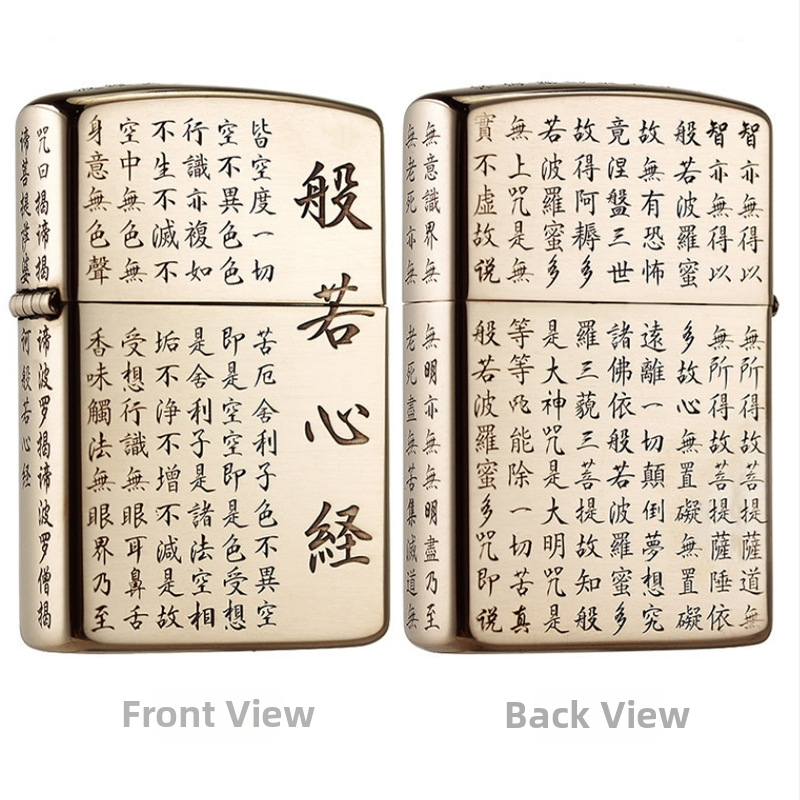 般若心経
皆空度一切苦厄舍利子色不異空
空不異色色即是空空即是色受想
行識亦複如是舍利子是諸法空相
不生不滅不垢不浄不增不減是故
空中無色無受想行識無眼耳鼻舌
身意無色聲香味觸法無眼界乃至
咒曰揭谛揭谛波罗揭谛波罗僧揭
谛菩提薩婆何般若心经
智亦無得以無所得故菩提薩道無
智亦無得以無所得故菩提薩埵依
般若波羅蜜多故心無置礙無置礙
故無有恐怖遠離一切顛倒夢想究
竟涅盤三世諸佛依般若波羅蜜多
故得阿耨多羅三藐三菩提故知般
若波羅蜜多是大神咒是大明咒是
無上咒是無等等咒能除一切苦真
實不虛故说般若波羅蜜多咒即说
無意識界無無明亦無無明盡乃至
無老死亦無老死盡無苦集滅道無
Front View
Back View